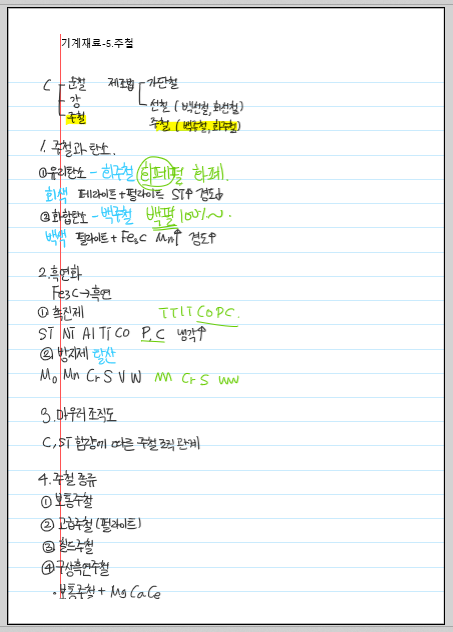 기계재료-5.주철
C 순철 제조법 가단철
강 선철 (백선철, 회선철)
주철 주철 (백주철, 회주철)
1. 주철과 탄소.
① 유리탄소 - 회주철 회페펄 하계.
회색 페라이트+펄라이트 Si↑ 경도↓
② 화합탄소 - 백주철 백펄 100%~.
백색 펄라이트 + Fe3C Mn↑ 경도↑
2. 흑연화
Fe3C→흑연
① 촉진제 TTITCOPC.
Si Ni Al Ti Co P, C 냉각↑
② 방지제 탈산
Mo Mn Cr S V W m Cr S
3. 마우러 조직도
C, Si 함량에 따른 주철 조직 관계
4. 주철 종류
① 보통주철
② 고급주철 (펄라이트)
③ 칠드주철
④ 구상흑연주철
· 보통주철 + Mg Ca Ce